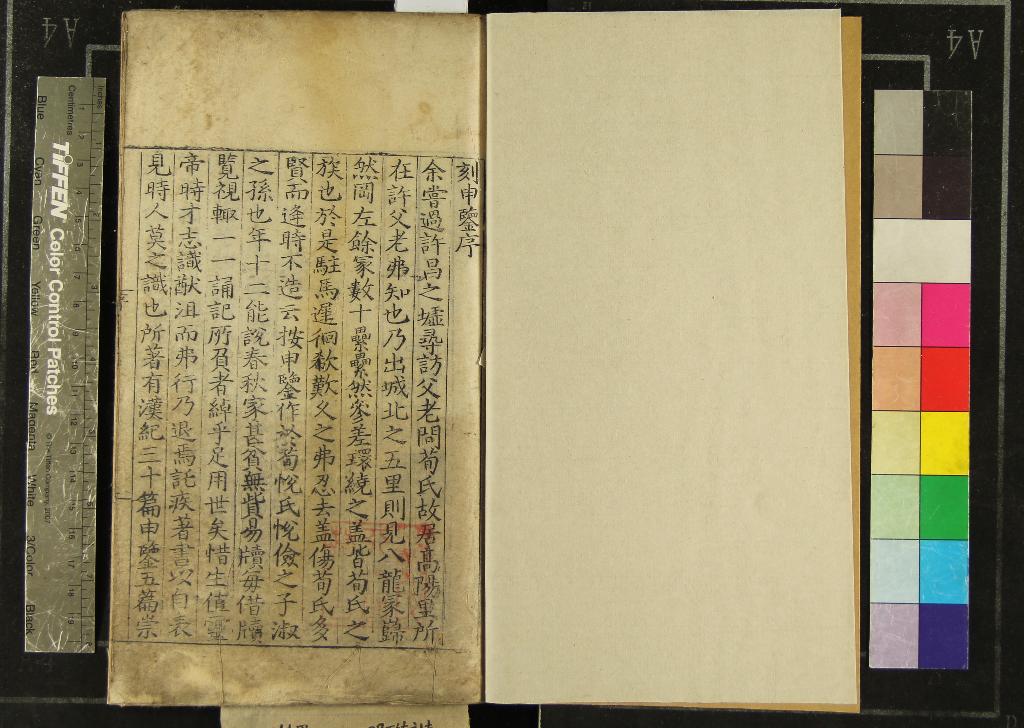 刻申鑒序
余嘗過許昌之墟尋訪父老問荀氏故居高陽里所
在許父老弗知也乃出城北之五里則見八龍冢巋
然岡左餘冢數十纍纍然參差環繞之盖皆荀氏之
族也於是駐馬遲徊歔歎久之弗忍去盖傷荀氏多
賢而逢時不造云按申鑒作於荀悅氏悅儉之子淑
之孫也年十二能說春秋家甚貧無貲易牘每借牘
覽視輙一一誦記所負者綽乎足用世矣惜生值靈
帝時才志識猷沮而弗行乃退焉託疾著書以自表
見時人莫之識也所著有漢紀三十篇申鑒五篇崇
序
A4
A4
Inches
Centimetres
TIFFEN Color Control Patches
© The Tiffen Company, 2007
Blue
Cyan
Green
Yellow
Red
Magenta
White
3/Color
Black